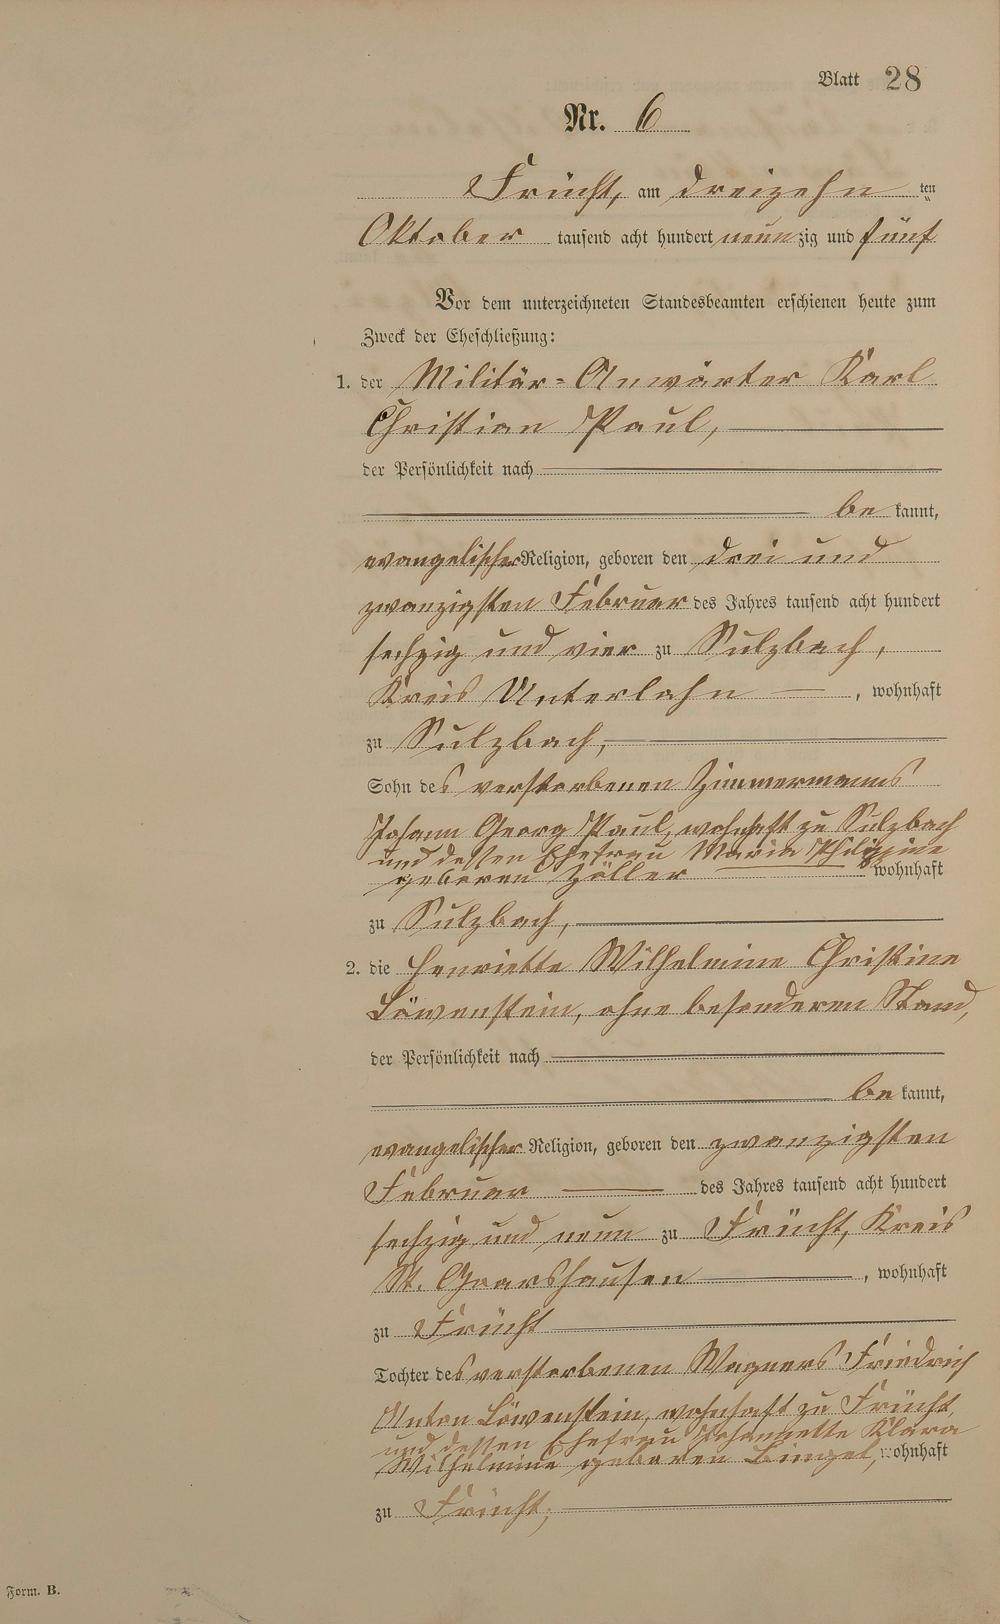 Blatt 28
Nr. 6
Frücht, am dreizehn ten
Oktober tausend acht hundert neunzig und fünf
Vor dem unterzeichneten Standesbeamten erschienen heute zum
Zweck der Eheschließung:
1. der Militär-Anwärter Karl
Christian Paul,
der Persönlichkeit nach
be kannt,
evangelischer Religion, geboren den drei und
zwanzigsten Februar des Jahres tausend acht hundert
sechzig und vier zu Sulzbach,
Kreis Unterlahn, wohnhaft
zu Sulzbach,
Sohn des verstorbenen Zimmermanns
Johann Georg Paul, wohnhaft zu Sulzbach
und dessen Ehefrau Maria Philippine
geboren Zöller wohnhaft
zu Sulzbach,
2. die Henriette Wilhelmine Christine
Löwenstein, ohne besonderen Stand,
der Persönlichkeit nach
be kannt,
evangelischer Religion, geboren den zwanzigsten
Februar des Jahres tausend acht hundert
sechzig und neun zu Frücht, Kreis
St. Goarshausen, wohnhaft
zu Frücht
Tochter des verstorbenen Wagners Friedrich
Anton Löwenstein, wohnhaft zu Frücht,
und dessen Ehefrau Johannette Klara
Wilhelmine geboren Bingel, wohnhaft
zu Frücht,
Form. B.